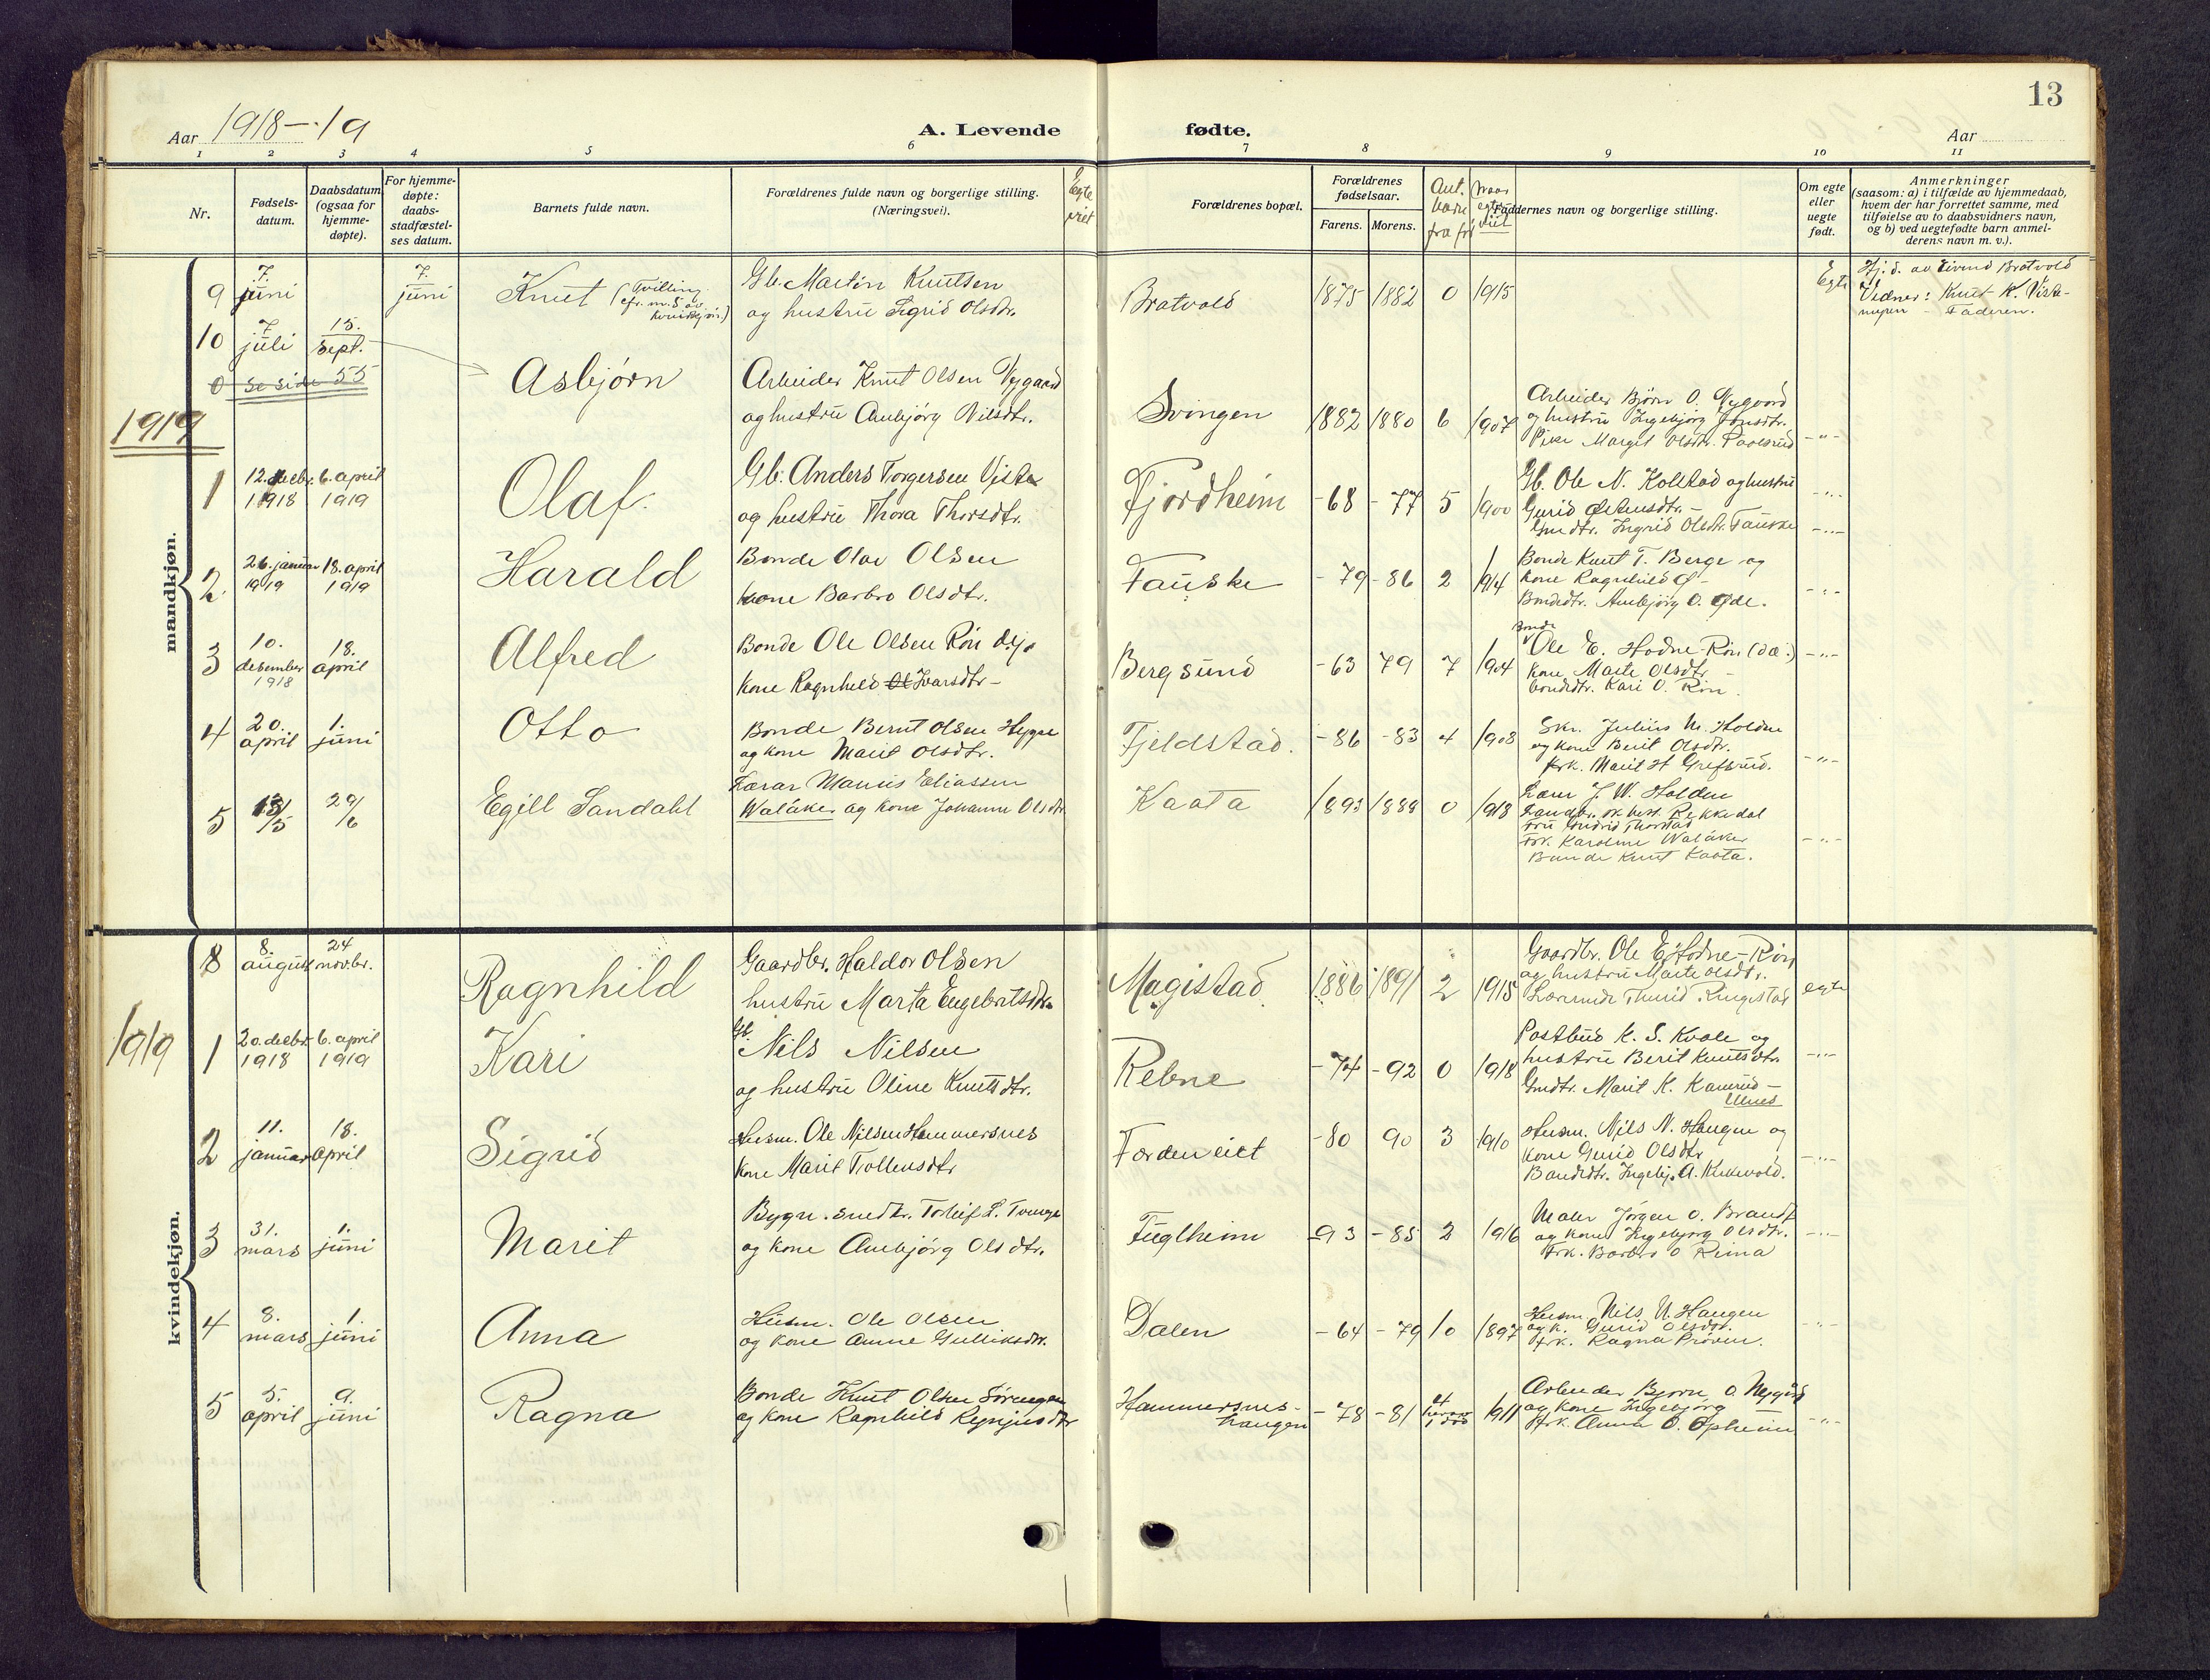 13
Aar 1918–19
A. Levende fødte.
Aar
1 2 3 4 5 6 7 8 9 10 11
Nr.
Fødsels-
datum.
Daabsdatum
(ogsaa for
hjemme-
døpte).
For hjemme-
døpte:
daabs-
stadfæstel-
ses datum.
Barnets fulde navn.
Forældrenes fulde navn og borgerlige stilling.
(Næringsvei).
Egte
viet
Forældrenes bopæl.
Forældrenes
fødselsaar.
Farens. Morens.
Ant.
barn
fra før
Naar
egte
viet
Faddernes navn og borgerlige stilling.
Om egte
eller
uegte
født.
Anmerkninger
(saasom: a) i tilfælde av hjemmedaab,
hvem der har forrettet samme, med
tilføielse av to daabsvidners navn,
og b) ved uegtefødte barn anmel-
derens navn m. v.).
mandkjøn.
9 7. juni 7. juni Knut (Tvilling
cfr. m. 8 av
kvindkjøn.)
Gb. Martin Knutsen
og hustru Sigrid Olsdtr.
Bratvold 1875 1882 0 1915 Egte
Hj. d. av Eivind Bratvold
Vidner: Knut K. Viste-
Faderen.
10 7. juli 15. sept. Asbjørn
0 se side 55
Arbeider Knut Olsen Nygaard
og hustru Anbjørg Nilsdtr.
Svingen 1882 1880 6 1907
Arbeider Bjørn O. Nygaard
og hustru Ingebjørg Jonsdtr.
Pike Margit Olsdtr. Paalsrud -"-
1919
1 12. decbr. 1918 6. april 1919 Olaf.
Gb. Anders Torgersen Viste
og hustru Thora Thorsdtr.
Fjordheim -68 -77 5 1900
Gb. Ole N. Kolstad og hustru -"-
Gurid Østensdtr. -
Gmdtr. Ingrid Olsdtr. Fauske -"-
2 26. januar 1919 18. april 1919 Harald
Bonde Olav Olsen
kone Barbro Olsdtr.
Fauske -79 -86 2 1914
Bonde Knut T. Berge og
kone Ragnhild O -
Bondedtr. Anbjørg O. Øde. -"-
3 10. desember 1918 18. april Alfred
Bonde Ole Olsen Rön
kone Ragnhild Ol Ivarsdtr -
Bergsund -63 79 7 1904
Bonde
Ole E. Hodne-Rön -"-
kone Marte Olsdtr -
bondedtr. Kari O. Rön.
4 20. april 1. juni Otto
Bonde Bernt Olsen Hegge
og kone Marit Olsdtr.
Fjeldstad. -86 -83 4 1908
Skr. Julius M. Holden
og kone Berit Olsdtr.
frk. Marit H Grefsrud. -"-
5 13/5 29/6 Egill Sandahl
Lærar Manus Eliassen
Walåker og kone Johanne Olsdtr
Kaata 1893 1888 0 1918
Lærer J. W. Holden
Rekkedal
Fru Gudrid Thorstad
Frk. Karoline Walåker -"-
Bonde Knut Kaata.
kvindekjøn.
8 8. august 24 nov.br. Ragnhild
Gaardbr. Haldor Olsen
hustru Marta Engebritsdtr.
Magistad 1886 1891 2 1915
Gaardbr. Ole E. Hodne-Rön
og hustru Marte Olsdtr.
Lærerinde Thurid Ringestad egte
1919
1 20. decbr. 1918 6. april 1919 Kari
Gb.
Nils Nilsen
og hustru Oline Knutsdtr.
Rebne -74 -92 0 1918
Postbud K. S. Kvale og
hustru Berit Knutsdtr. -"-
Gmdtr. Marit K. Kamrud -
Ulnes
2 11. januar 18. april Sigrid
Husm. Ole Nilsen Hammersnes
kone Marit Trollensdtr
Fordeneiet -80 90 3 1910
Husm. Nils N. Haugen og
kone Gurid Olsdtr -"-
Bondedtr. Ingebj. A. Kirkevold.
3 31. mars 1. juni Marit
Bygn. snedk. Torleif L. Tvenge
og kone Anbjørg Olsdtr.
Fuglheim -93 -85 2 1916
Maler Jørgen O. Brandt
og kone Ingebjørg Olsdtr. -"-
Frk. Barbro O Reina
4 8. mars 1. juni Anna
Husm. Ole Olsen
og kone Anne Gulliksdtr.
Dalen -64 -79 10 1897
Husm Nils N. Haugen
og k. Gurid Olsdtr. -"-
frk. Ragna Pröven.
5 5. april 9. juni Ragna
Bonde Knut Olsen Sörengen
og kone Ragnhild
Hammersnes-
haugen -78 -81 4
hvorav
1 död 1911
Arbeider Bjørn O. Nygård
og kone Ingebjørg
frk. Anna O. Opheim -"-